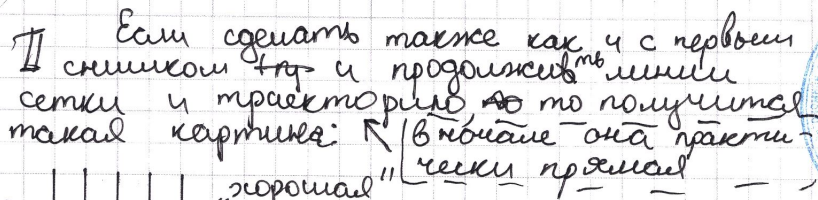 II Если сделать также как и с первым
снимком и продолжить линии
сетки и траекторию, то получится
такая картина: (в начале она практи-
„хорошая" чески прямая